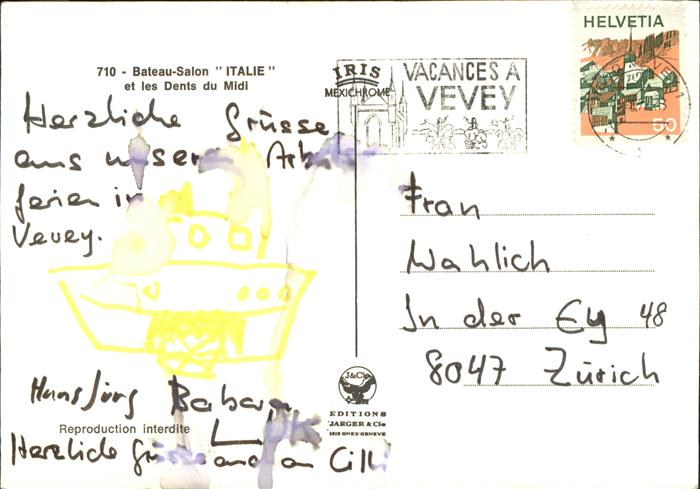 710 - Bateau-Salon "ITALIE"
et les Dents du Midi
Herzliche Grüsse
aus unseren
ferien in
Vevey.
Hansjürg Barbara
Reproduction interdite
Herzliche Grüsse auch an Cilli
IRIS
MEXICHROME
J&Cie
EDITIONS
JAEGER & Cie
IRIS ONEX-GENEVE
VACANCES A
VEVEY
HELVETIA
50
Frau
Wahlich
In der Ey 48
8047 Zürich